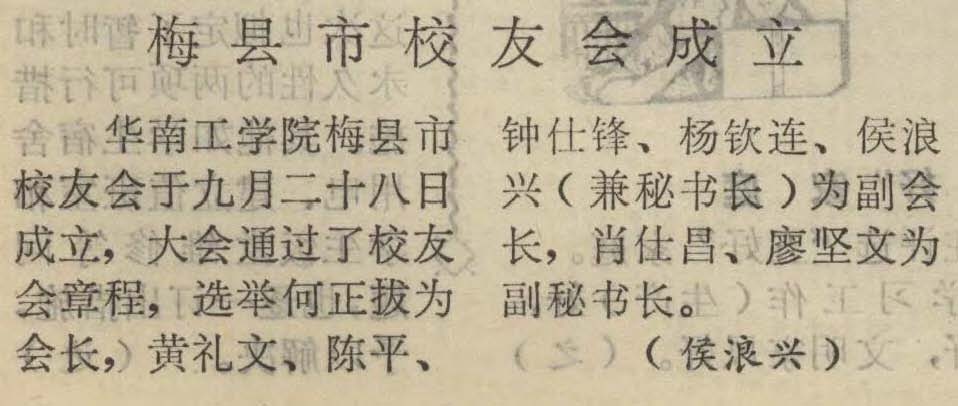 梅县市校友会成立
华南工学院梅县市
校友会于九月二十八日
成立，大会通过了校友
会章程，选举何正拔为
会长，黄礼文、陈平、
钟仕锋、杨钦连、侯浪
兴（兼秘书长）为副会
长，肖仕昌、廖坚文为
副秘书长。
（侯浪兴）